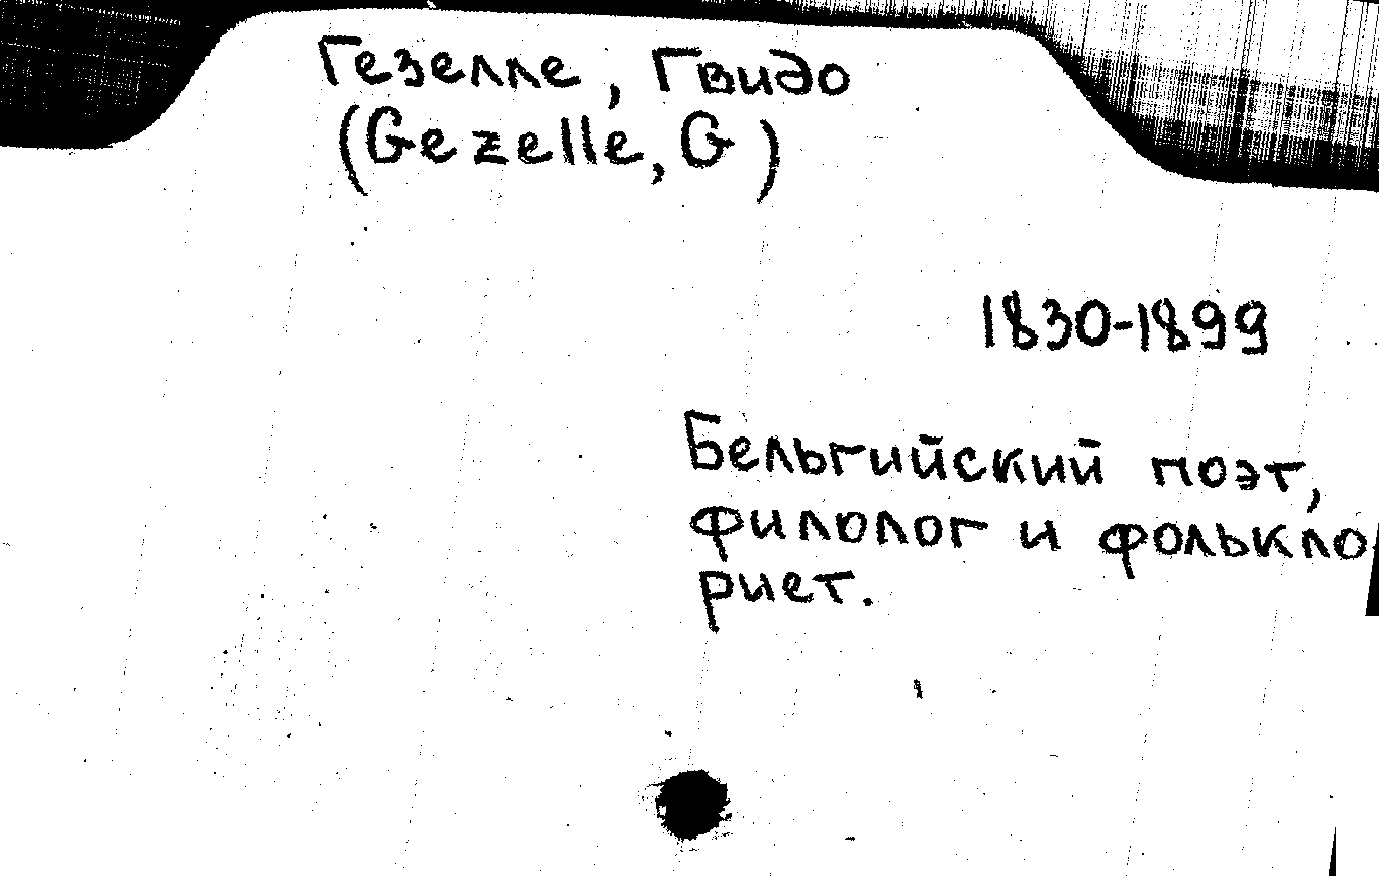 Гезелле, Гвидо
(Gezelle, G)
1830-1899
Бельгийский поэт,
филолог и фолькло
рист.